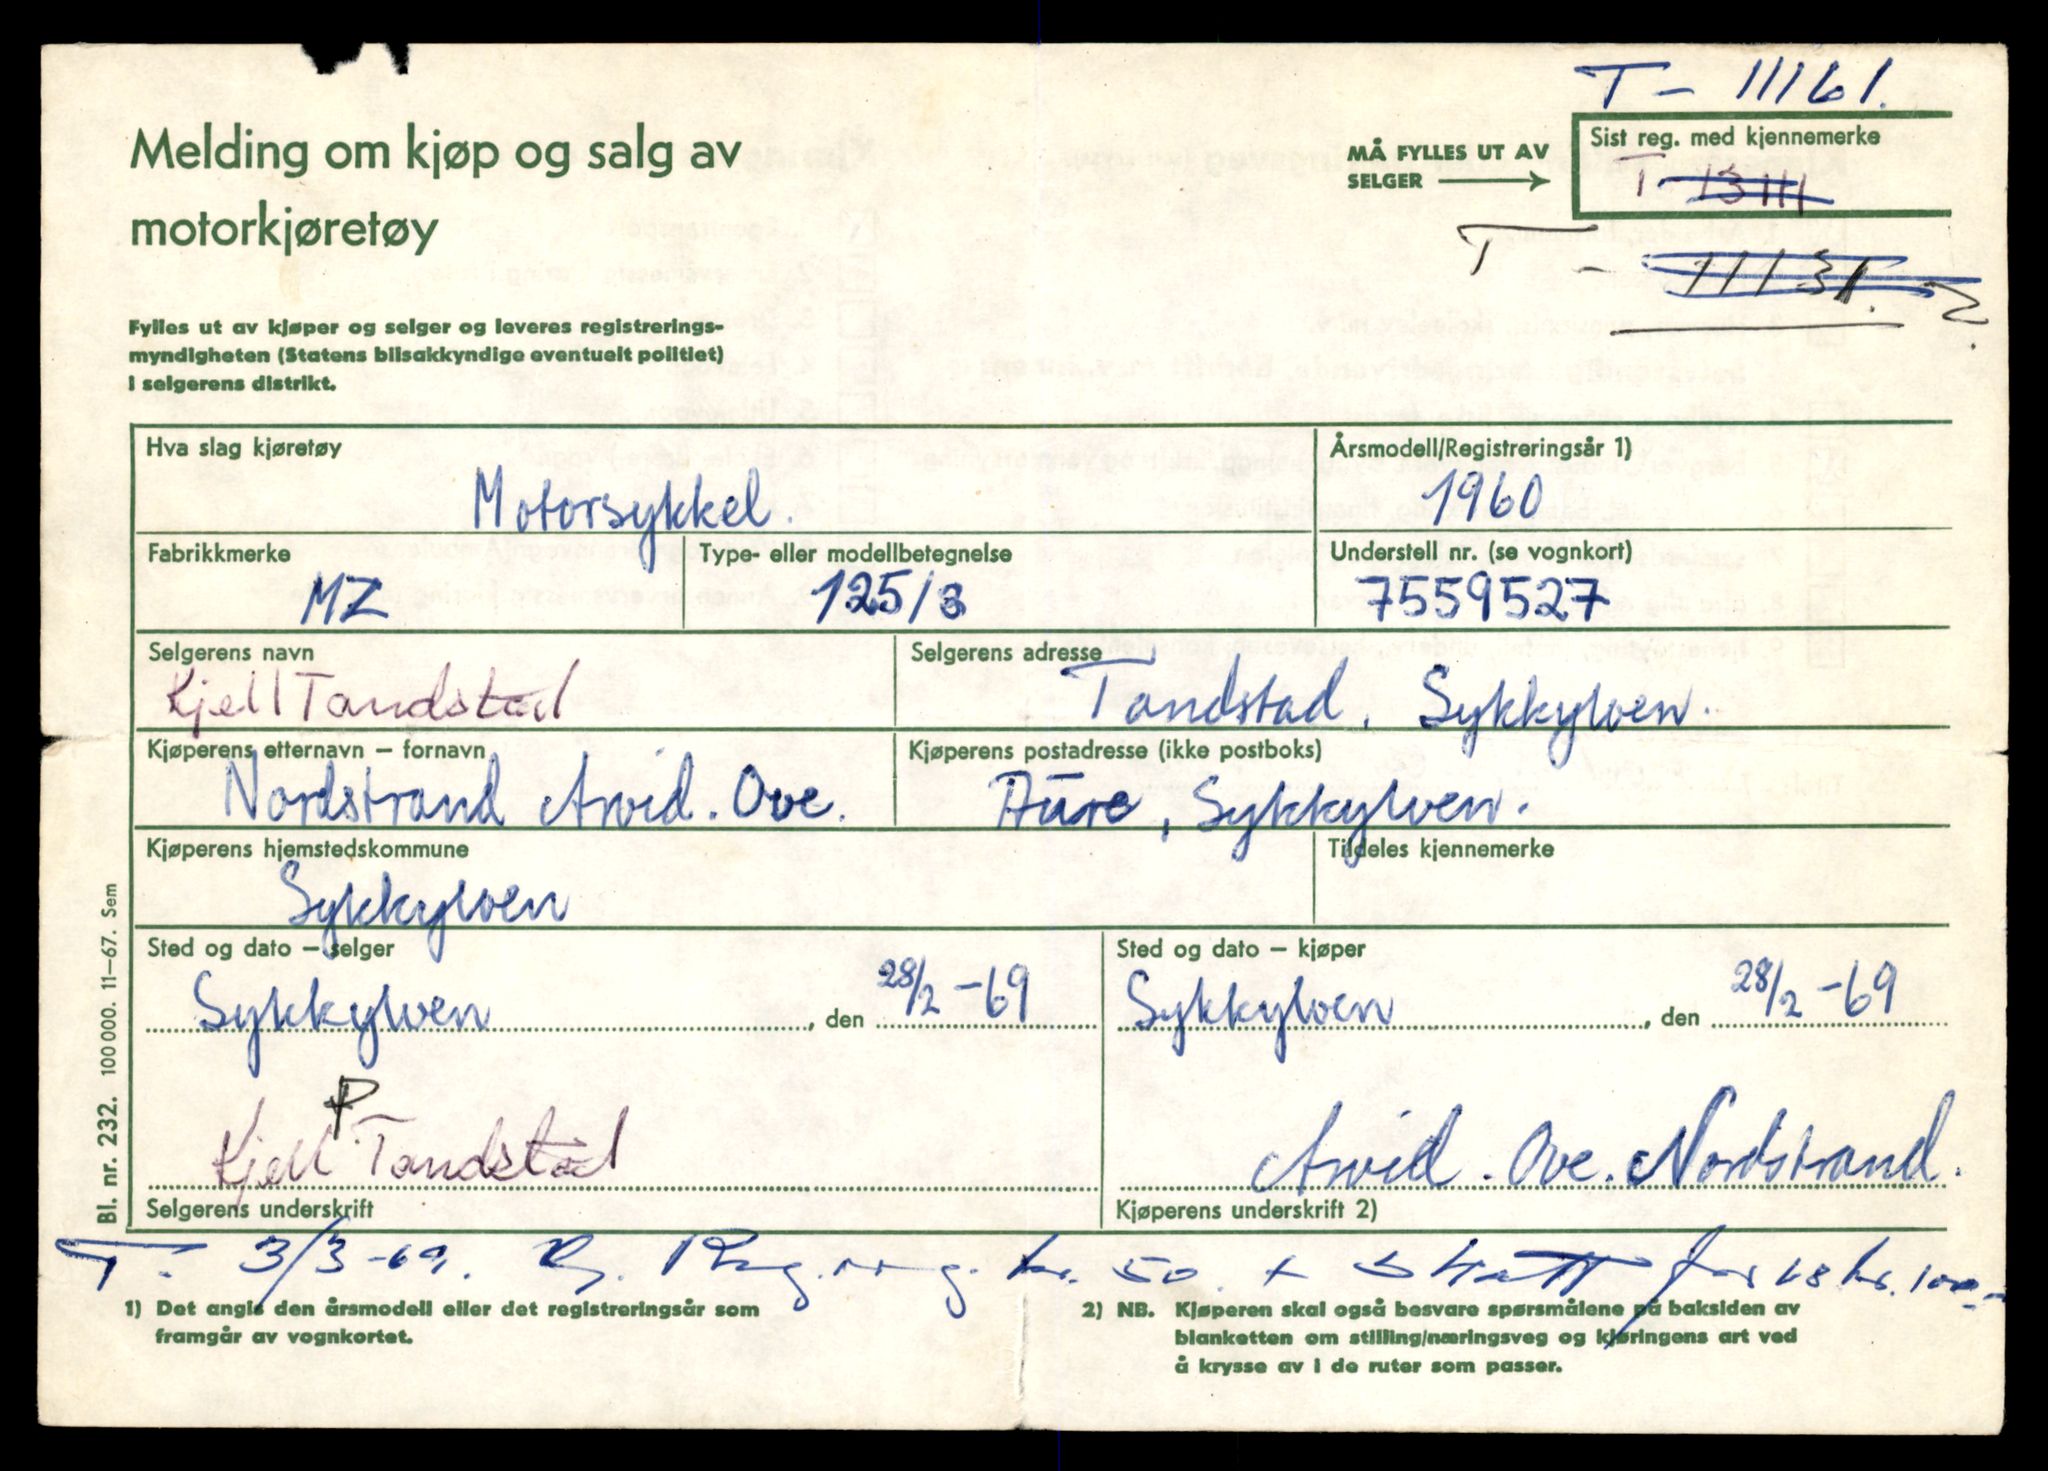 T - 11161.
Melding om kjøp og salg av
motorkjøretøy
MÅ FYLLES UT AV
SELGER
Sist reg. med kjennemerke
T - 13111
T - 11131.
Fylles ut av kjøper og selger og leveres registrerings-
myndigheten (Statens bilsakkyndige eventuelt politiet)
i selgerens distrikt.
Hva slag kjøretøy
Motorsykkel.
Årsmodell/Registreringsår 1)
1960
Fabrikkmerke
MZ
Type- eller modellbetegnelse
125/3
Understell nr. (se vognkort)
7559527
Selgerens navn
Kjell Tandstad
Selgerens adresse
Tandstad, Sykkylven.
Kjøperens etternavn – fornavn
Nordstrand Arvid. Ove.
Kjøperens postadresse (ikke postboks)
Aure, Sykkylven.
Kjøperens hjemstedskommune
Sykkylven
Tildeles kjennemerke
Sted og dato – selger
Sykkylven, den 28/2 -69
Sted og dato – kjøper
Sykkylven, den 28/2 -69
Kjell P. Tandstad
Selgerens underskrift
Arvid. Ove. Nordstrand.
Kjøperens underskrift 2)
T. 3/3-69. kr. 50 + skatt for 68 kr. 100.-
1) Det angis den årsmodell eller det registreringsår som
framgår av vognkortet.
2) NB. Kjøperen skal også besvare spørsmålene på baksiden av
blanketten om stilling/næringsveg og kjøringens art ved
å krysse av i de ruter som passer.
Bl. nr. 232. 100 000. 11–67. Sem